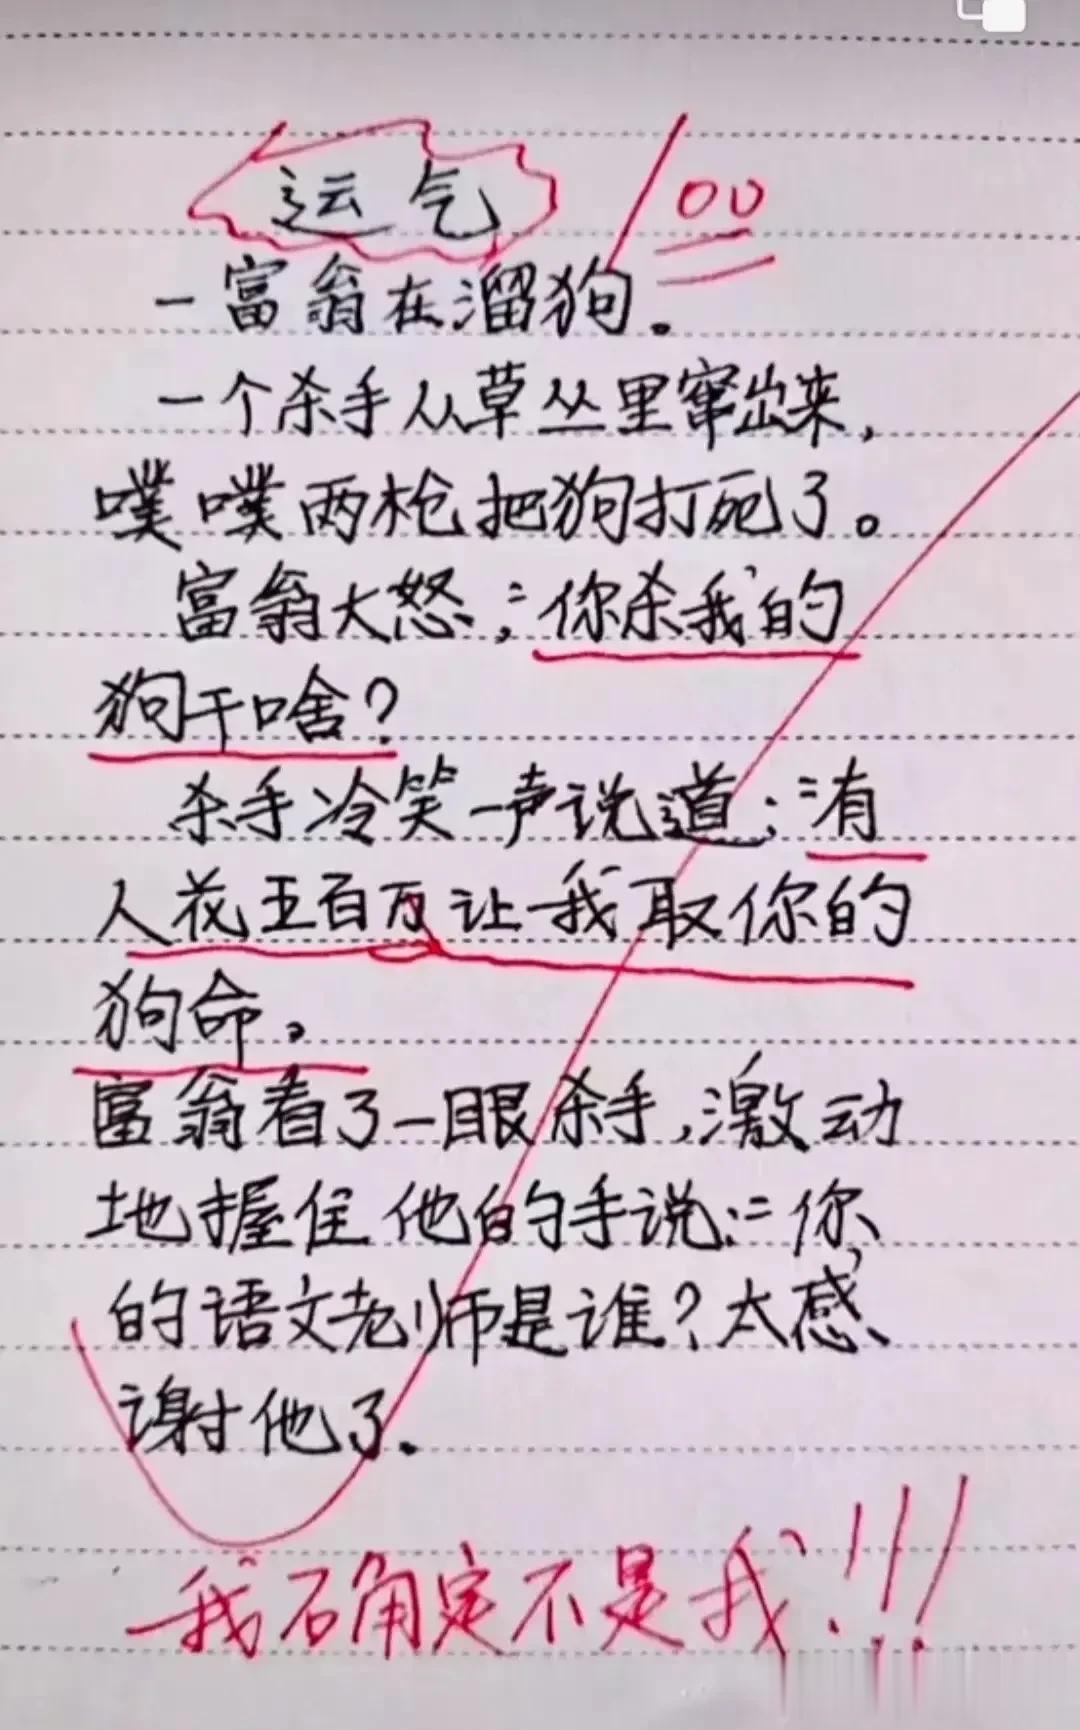 运气
100
一富翁在溜狗。
一个杀手从草丛里窜出来,
噗噗两枪把狗打死了。
富翁大怒:“你杀我的
狗干啥?
杀手冷笑一声说道:“有
人花五百万让我取你的
狗命。
富翁看了一眼杀手,激动
地握住他的手说:“你
的语文老师是谁?太感
谢他了.
我确定不是我!!!